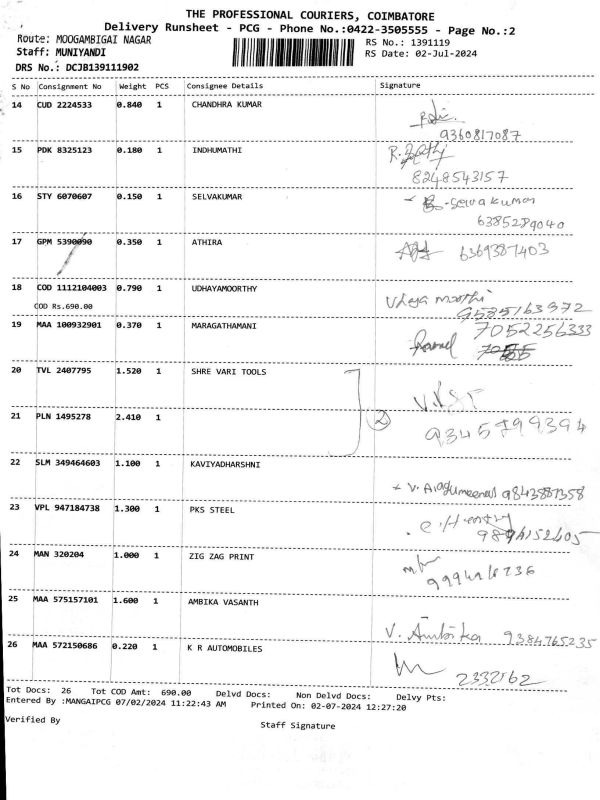 THE PROFESSIONAL COURIERS, COIMBATORE
Delivery Runsheet - PCG - Phone No.:0422-3505555 - Page No.:2
Route: MOOGAMBIGAI NAGAR
RS No.: 1391119
Staff: MUNIYANDI
RS Date: 02-Jul-2024
DRS No.: DCJB139111902
S No Consignment No Weight PCS Consignee Details Signature
14 CUD 2224533 0.840 1 CHANDHRA KUMAR
9360817087
15 PDK 8325123 0.180 1 INDHUMATHI
8248543157
16 STY 6070607 0.150 1 SELVAKUMAR
Selva kumar
6385289040
17 GPM 5390090 0.350 1 ATHIRA
6369387403
18 COD 1112104003 0.790 1 UDHAYAMOORTHY
COD Rs.690.00
19 MAA 100932901 0.370 1 MARAGATHAMANI
7052256333
20 TVL 2407795 1.520 1 SHRE VARI TOOLS
21 PLN 1495278 2.410 1
2
9345799394
22 SLM 349464603 1.100 1 KAVIYADHARSHNI
23 VPL 947184738 1.300 1 PKS STEEL
24 MAN 320204 1.000 1 ZIG ZAG PRINT
25 MAA 575157101 1.600 1 AMBIKA VASANTH
V. Ambika 9384765235
26 MAA 572150686 0.220 1 K R AUTOMOBILES
2332162
Tot Docs: 26 Tot COD Amt: 690.00 Delvd Docs: Non Delvd Docs: Delvy Pts:
Entered By :MANGAIPCG 07/02/2024 11:22:43 AM Printed On: 02-07-2024 12:27:20
Verified By
Staff Signature